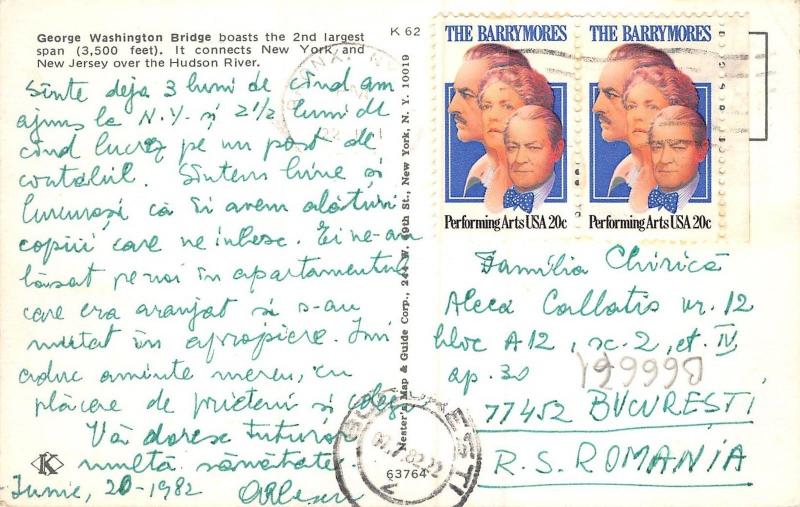 George Washington Bridge boasts the 2nd largest
span (3,500 feet). It connects New York and
New Jersey over the Hudson River.
K 62
Sînte deja 3 luni de cînd am
ajuns la N.Y. și 2 1/2 luni de
cînd lucrez pe un post de
contabil. Sîntem bine și
bucuroși că îi avem alături
copiii care ne iubesc. Ei ne-au
lăsat pe noi în apartamentul
care era aranjat și s-au
mutat în apropiere. Îmi
aduc aminte mereu, cu
plăcere de prieteni și colegi
Vă doresc tuturor
multă sănătate
Iunie, 20-1982
Nester's Map & Guide Corp., 244 W. 49th St., New York, N. Y. 10019
63764
K
THE BARRYMORES
Performing Arts USA 20c
THE BARRYMORES
Performing Arts USA 20c
Familia Chirică
Aleea Callatis nr. 12
bloc A12, sc. 2, et. IV,
ap. 30
77452 BUCUREȘTI
R.S. ROMANIA
BUCUREȘTI